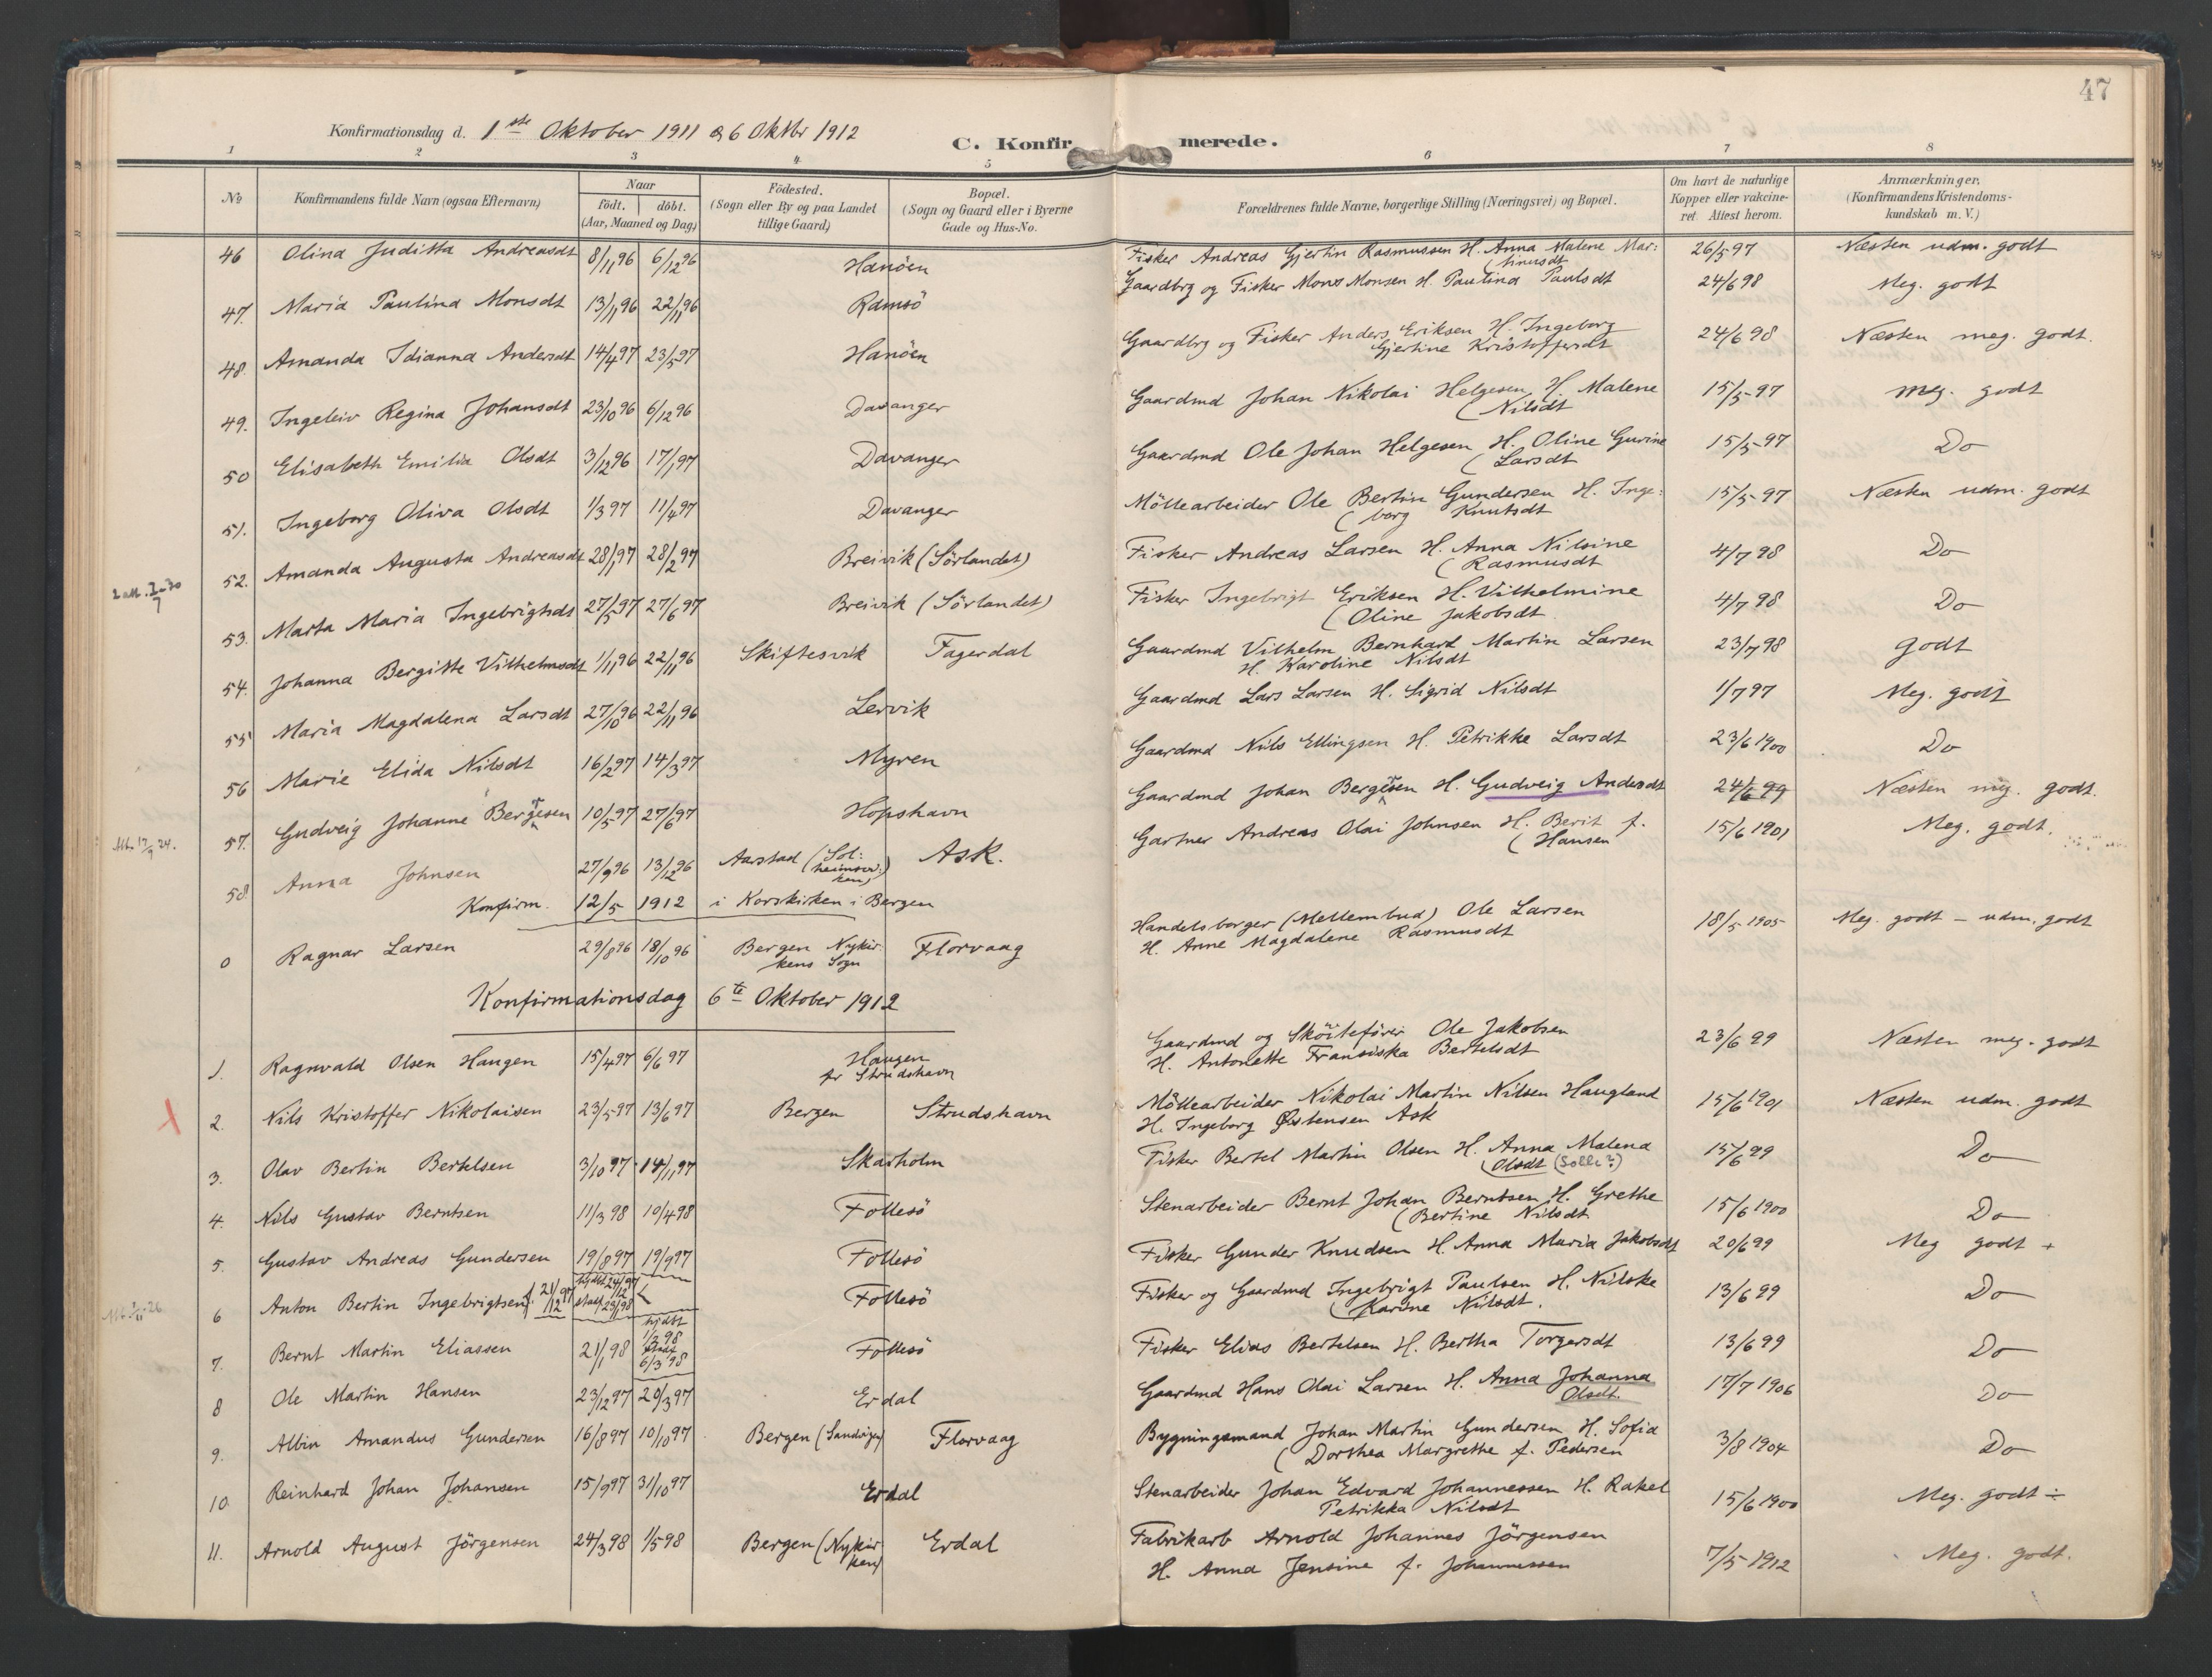 47
Konfirmationsdag d. 1ste Oktober 1911 & 6 Oktbr 1912
C. Konfirmerede.
1 2 3 4 5 6 7 8
No
Konfirmandens fulde Navn (ogsaa Efternavn)
Naar
födt. döbt.
(Aar, Maaned og Dag)
Födested.
(Sogn eller By og paa Landet
tillige Gaard)
Bopæl.
(Sogn og Gaard eller i Byerne
Gade og Hus-No.
Forældrenes fulde Navne, borgerlige Stilling (Næringsvei) og Bopæl.
Om havt de naturlige
Kopper eller vakcine-
ret. Attest herom.
Anmærkninger,
(Konfirmandens Kristendoms-
kundskab m. V.)
46 Olina Juditta Andreasdt 8/11 96 6/12 96 Hanöen Fisker Andreas Gjertin Rasmussen H. Anna Malene Mar: 26/5 97 Næsten udm. godt
(tinusdt
47. Maria Paulina Monsdt 13/11 96 22/11 96 Ramsö Gaardbrg og Fisker Mons Monsen H. Paulina Paulsdt 24/6 98 Meg. godt
48. Amanda Idianna Andersdt 14/4 97 23/5 97 Hanöen Gaardbrg og Fisker Anders Eriksen H. Ingeborg 24/6 98 Næsten meg. godt.
Gjertine Kristoffersdt
49. Ingeleiv Regina Johansdt 23/10 96 6/12 96 Davanger Gaardmd Johan Nikolai Helgesen H. Malene 15/5-97 meg. godt
(Nilsdt
50 Elisabeth Emilia Olsdt 3/12 96 17/1 97 Davanger Gaardmd Ole Johan Helgesen H. Oline Gurine 15/5-97 Do
(Larsdt
51. Ingeborg Oliva Olsdt 1/3 97 11/4 97 Davanger Möllearbeider Ole Bertin Gundersen H. Inge: 15/5-97 Næsten udm. godt
(borg Knutsdt
52. Amanda Augusta Andreasdt 28/1 97 28/2 97 Breivik (Sörlandet) Fisker Andreas Larsen H. Anna Nilsine 4/7 98 Do
(Rasmusdt
53. Marta Maria Ingebrigtsdt 27/5 97 27/6 97 Breivik (Sörlandet) Fisker Ingebrigt Eriksen H. Vilhelmine 4/7 98 Do
(Oline Jakobsdt.
54. Johanna Bergitte Vilhelmsdt 1/11 96 22/11 96 Skiftesvik Fagerdal Gaardmd Vilhelm Bernhard Martin Larsen 23/7 98 godt
H. Karoline Nilsdt
55 Maria Magdalena Larsdt 27/10 96 22/11 96 Lervik Gaardmd Lars Larsen H. Sigrid Nilsdt 1/7 97 Meg. godt
56 Marie Elida Nilsdt 16/2 97 14/3 97 Myren Gaardmd Nils Ellingsen H. Petrikke Larsdt 23/6 1900 Do
57. Gudveig Johanne Bergesen 10/5 97 27/6 97 Hopshavn Gaardmd Johan Bergesen H. Gudveig Andersdt 24/6 99 Næsten meg. godt.
Att. 17/9 24.
58. Anna Johnsen 27/9 96 13/12 96 Aarstad (Sol: Ask. Gartner Andreas Olai Johnsen H. Berit f. 15/6 1901 Meg. godt.
heimsvi: (Hansen
ken)
Konfirm. 12/5 1912 i Korskirken i Bergen
0 Ragnar Larsen 29/8 96 18/10 96 Bergen Nykir: Florvaag Handelsborger (Mellembud) Ole Larsen 18/5 1905 Meg. godt - udm. godt
kens Sogn H. Anne Magdalene Rasmusdt
Konfirmationsdag 6te Oktober 1912
1. Ragnvald Olsen Haugen 15/4 97 6/6 97 Haugen Gaardmd og Sköitefører Ole Jakobsen 23/6 99 Næsten meg. godt
pr Strudshavn H. Antonette Fransiska Bertelsdt
X 2. Nils Kristoffer Nikolaisen 23/5 97 13/6 97 Bergen Strudshavn Möllearbeider Nikolai Martin Nilsen Haugland 15/6 1901 Næsten udm. godt
H. Ingeborg Østensen Ask
3. Olav Bertin Bertelsen 3/10 97 14/11 97 Skarholm Fisker Bertel Martin Olsen H. Anna Malena 15/6 99 Do
(Olsdt (Solli?)
4. Nils Gustav Berntsen 11/3 98 10/4 98 Follesö Stenarbeider Bernt Johan Berntsen H. Grethe 15/6 1900 Do
(Bertine Nilsdt
5. Gustav Andreas Gundersen 19/8 97 19/9 97 Follesö Fisker Gunder Knudsen H. Anna Maria Jakobsdt 20/6 99 Meg godt +
6 Anton Bertin Ingebrigtsen f. 21/12 97 hjdbt 24/12 97 stadf 23/1 98 Follesö Fisker og Gaardmd Ingebrigt Paulsen H. Nilske 13/6 99 Do
(Karine Nilsdt.
7. Bernt Martin Eliassen 21/1 98 hjdbt 1/3 98 stadf 6/3 98 Follesö Fisker Elias Bertelsen H. Bertha Torgersdt 13/6 99 Do
8 Ole Martin Hansen 23/12 97 20/3 97 Erdal Gaardmd Hans Olai Larsen H. Anna Johanna 17/7 1906 Do
Olsdt.
9. Albin Amandus Gundersen 16/8 97 10/10 97 Bergen (Sandvigen) Florvaag Bygningsmand Johan Martin Gundersen H. Sofia 3/8 1904 Do
(Dorthea Margrethe f. Pedersen
10. Reinhard Johan Johansen 15/9 97 31/10 97 Erdal Stenarbeider Johan Edvard Johannessen H. Rakel 15/6 1900 Meg. godt ÷
Petrikka Nilsdt
11. Arnold August Jörgensen 24/3 98 1/5 98 Bergen (Nykir: Erdal Fabrikarb Arnold Johannes Jörgensen 7/5 1912 Meg. godt.
ken) H. Anna Jensine f. Johannessen